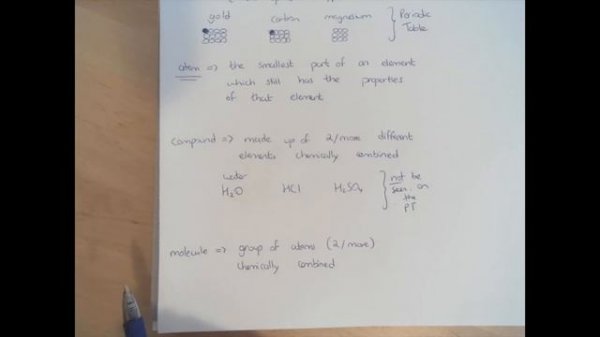 gold carbon magnesium
Periodic
Table
atom => the smallest part of an element
which still has the properties
of that element
compound => made up of 2/more different
elements chemically combined
water
H₂O HCl H₂SO₄
not be
seen on
the
PT
molecule => group of atoms (2/more)
chemically combined